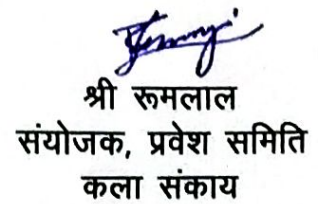 श्री रूमलाल
संयोजक, प्रवेश समिति
कला संकाय